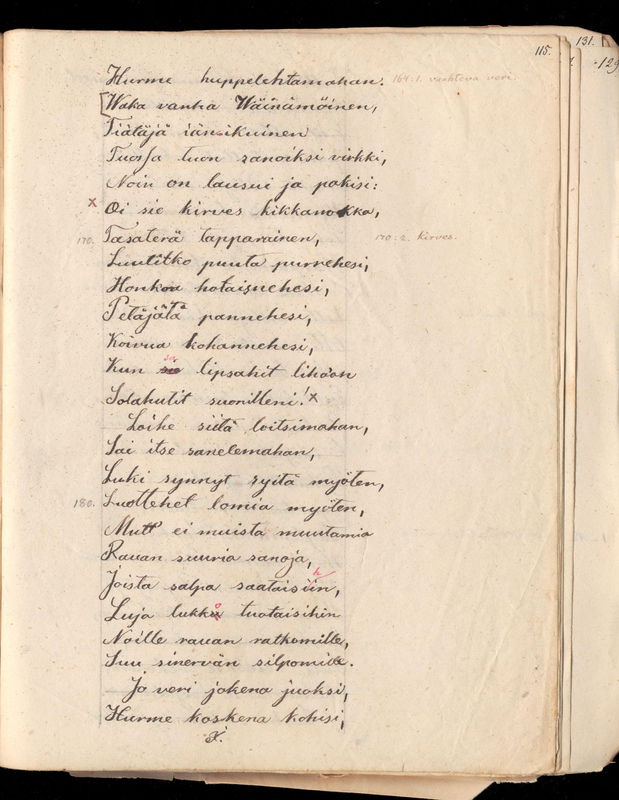 115.
131.
129
Hurme huppelehtamahan. 164:1. vaahtova veri.
[Waka vanha Wäinämöinen,
Tiätäjä iän-ikuinen
Tuossa tuon sanoiksi virkki,
Noin on lausui ja pakisi:
x Oi sie kirves kikkanokka,
170. Tasaterä tapparainen, 170:2. Kirves.
Luulitko puuta purrehesi,
Honkoa hotaisnehesi,
Petäjätä pannehesi,
Koivua kohannehesi,
Kun sa lipsahit lihöan
Solahutit suonilleni! x
Loihe siitä loitsimahan,
Sai itse sanelemahan,
Luki synnyt syitä myöten,
180. Luottehet lomia myöten,
Mutt' ei muista muutamia
Rauan suuria sanoja,
Joista salpa saataisihin,
Luja lukko tuotaisihin
Noille rauan ratkomille,
Suu sinervän silpomille.
Jo veri jokena juoksi,
Hurme koskena kohisi,